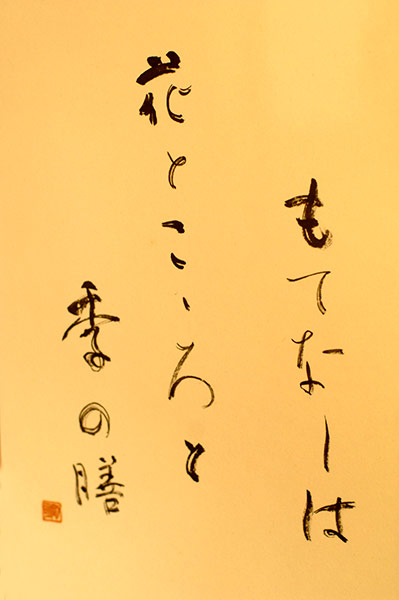 もてなしは
花とこゝろと
季の膳